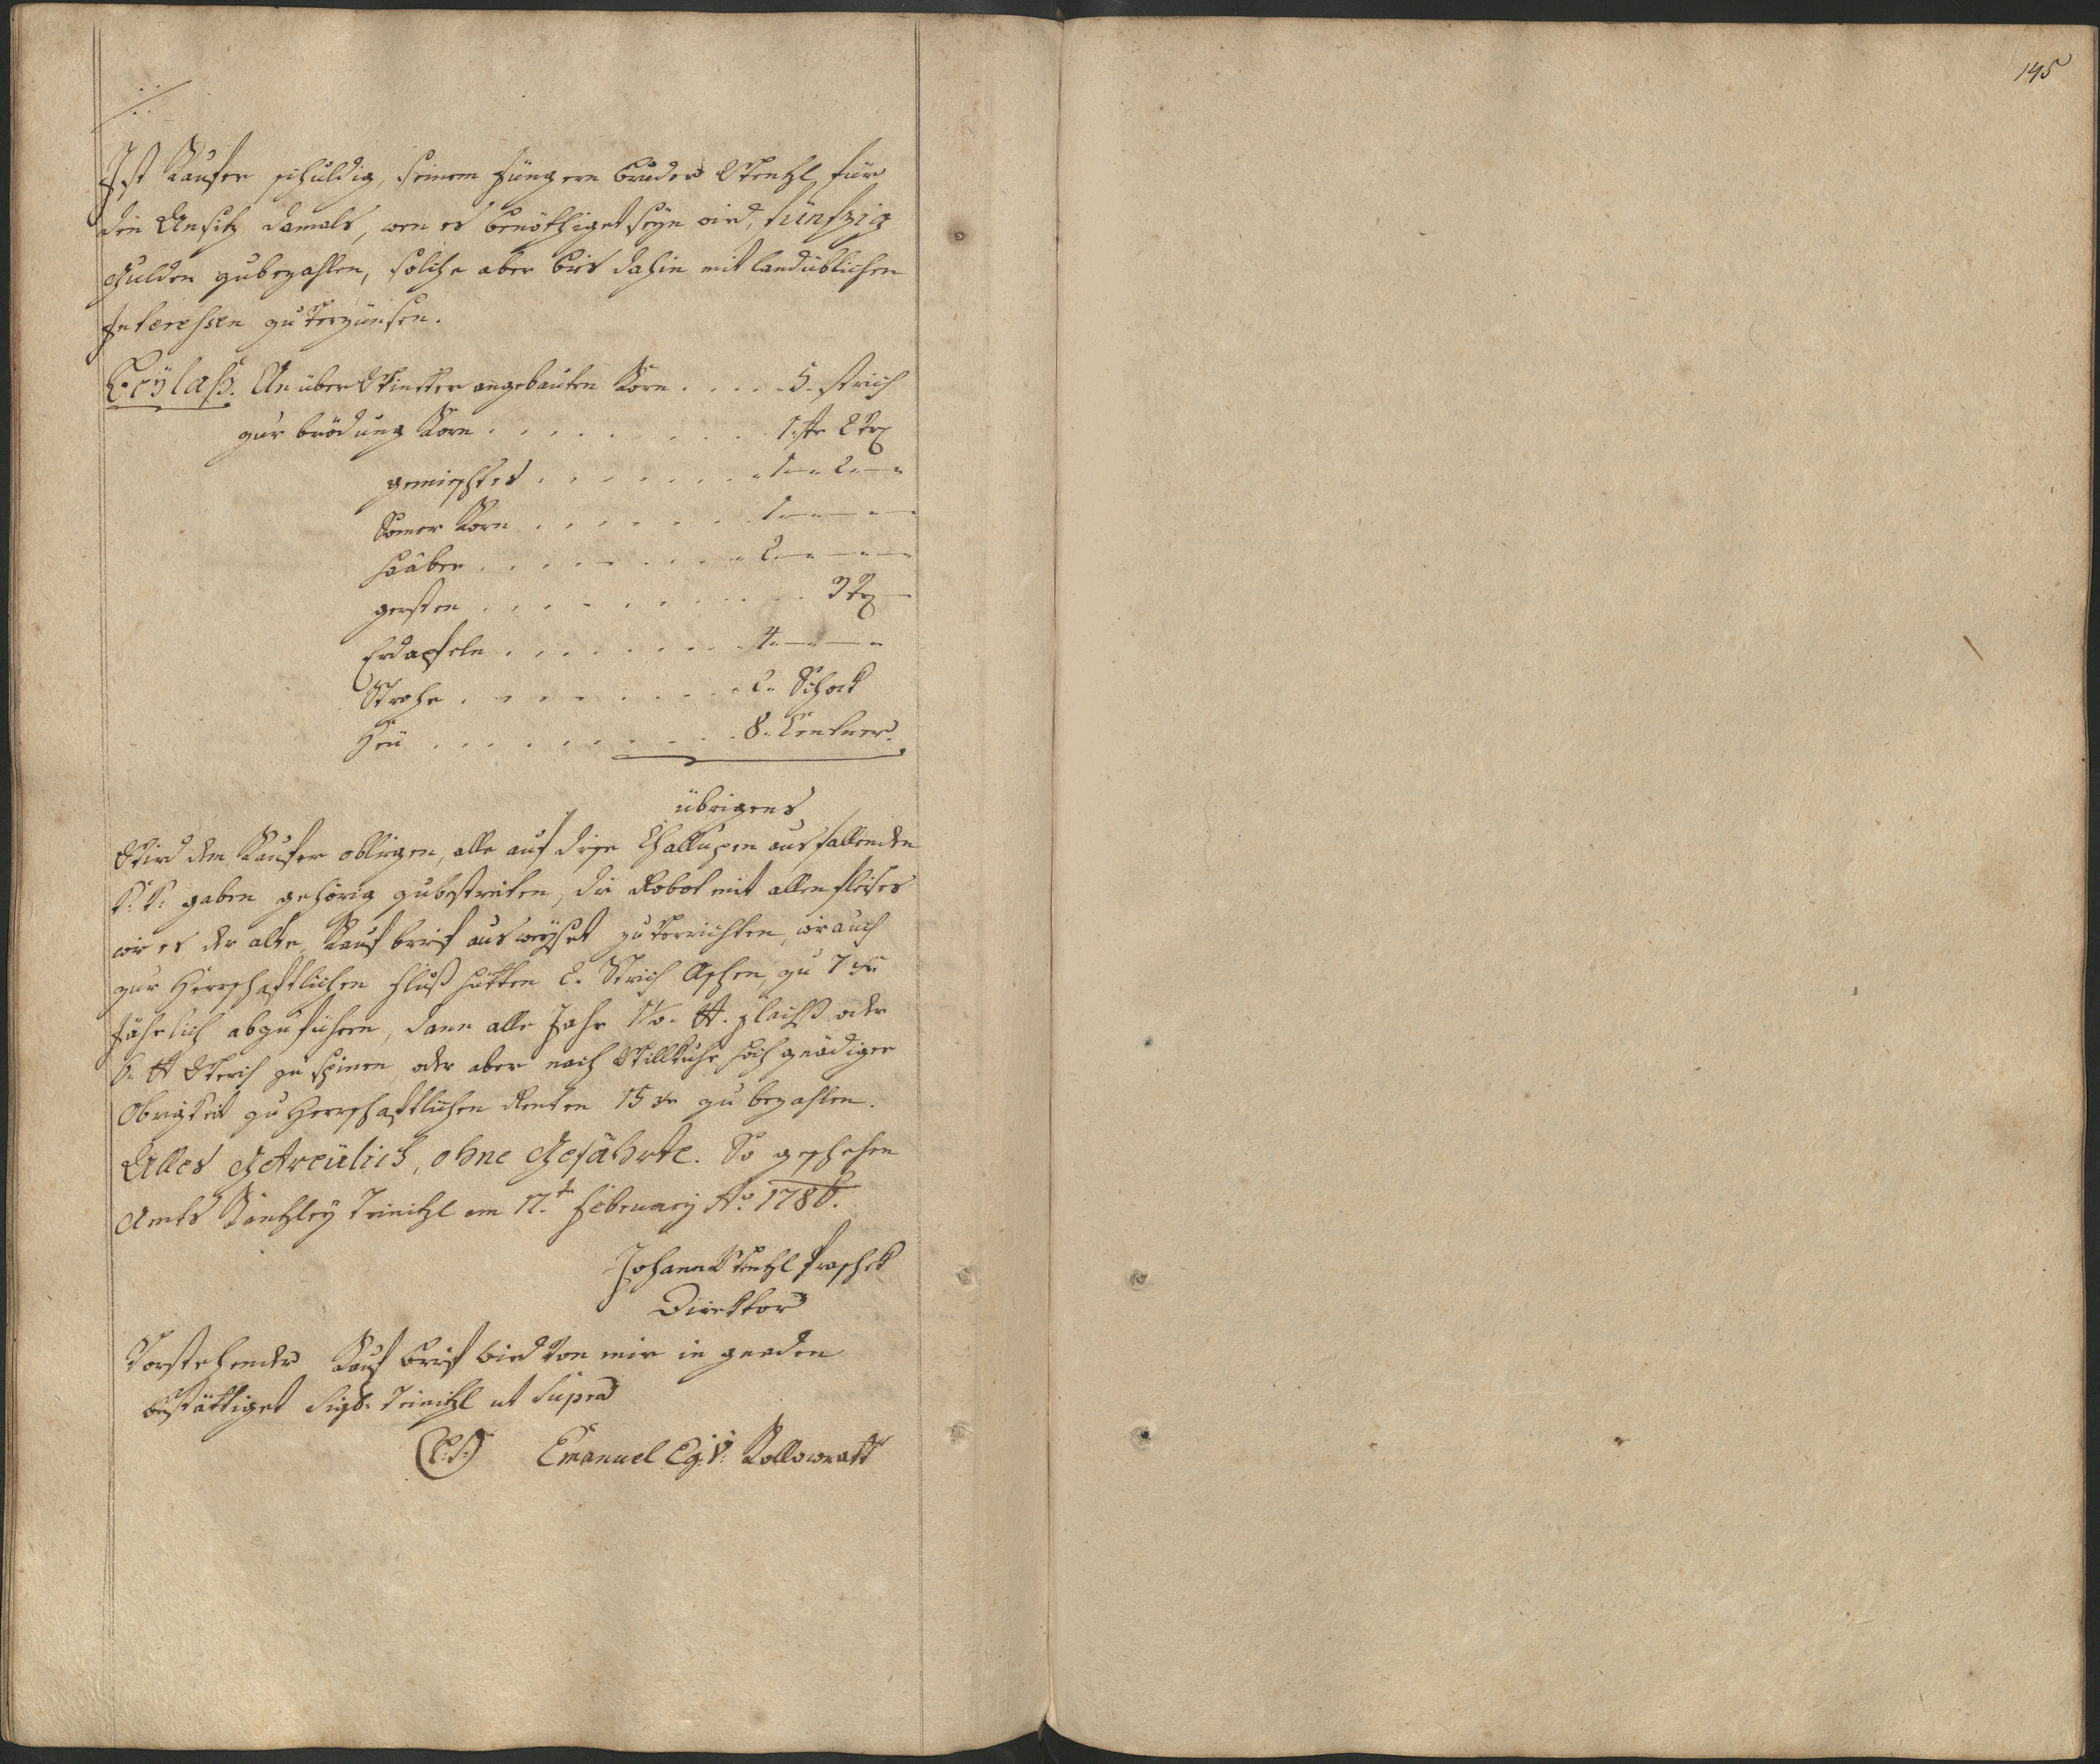 145
./.
Ist Kaufer schuldig, seinem jüngern bruder Wentzl für
den Ansitz damals, wen es benöthiget seyn wird, fünfzig
Gulden zubezahlen, solche aber bis dahin mit landüblichen
Interessen zu verzünsen.
Beÿlaß. An über Winter angebauten Korn . . . . 5. strich
zur brödung Korn . . . . . . . . 1. str 2 Vrl
gemischtes . . . . . . . 1 — " 2 — "
Somer Korn . . . . . . 1 — " — " —
Haaber . . . . . . . . 2 — " — " —
gersten . . . . . . . . . . 3 Vrl —
Erdapfeln . . . . . . . . 4 — " — "
Strohe . . . . . . . . 2. Schock
Heü . . . . . . . . . 8. Centner.
übrigens
Wird dem Kaufer obligen, alle auf diese Challupen ausfallenden
K: K: gaben gehörig zubestreiten, die Robot mit allen fleises
wie es der alte Kauf brief ausweyset zu verrichten, wie auch
zur Herrschaftlichen fluß hütten 2. Strich Aschen, zu 7 xr
jährlich abzuführen, dann alle Jahr
oder aber nach Willkuhr hoch gnädiger
Obrigkeit zu Herrschaftlichen Renten 15 xr zu bezahlen.
Alles Getreülich, ohne Gefährte. So geschehen
Amts Kantzley Teinitzl am 12.t February Ao. 1786.
Johann Wentzl Praschek
Direktor
Vorstehender Kauf brief wird von mir in gnaden
bestättiget Sigl. Teinitzl ut Supra
(L:S:) Emanuel Eg. V: Kollowratt